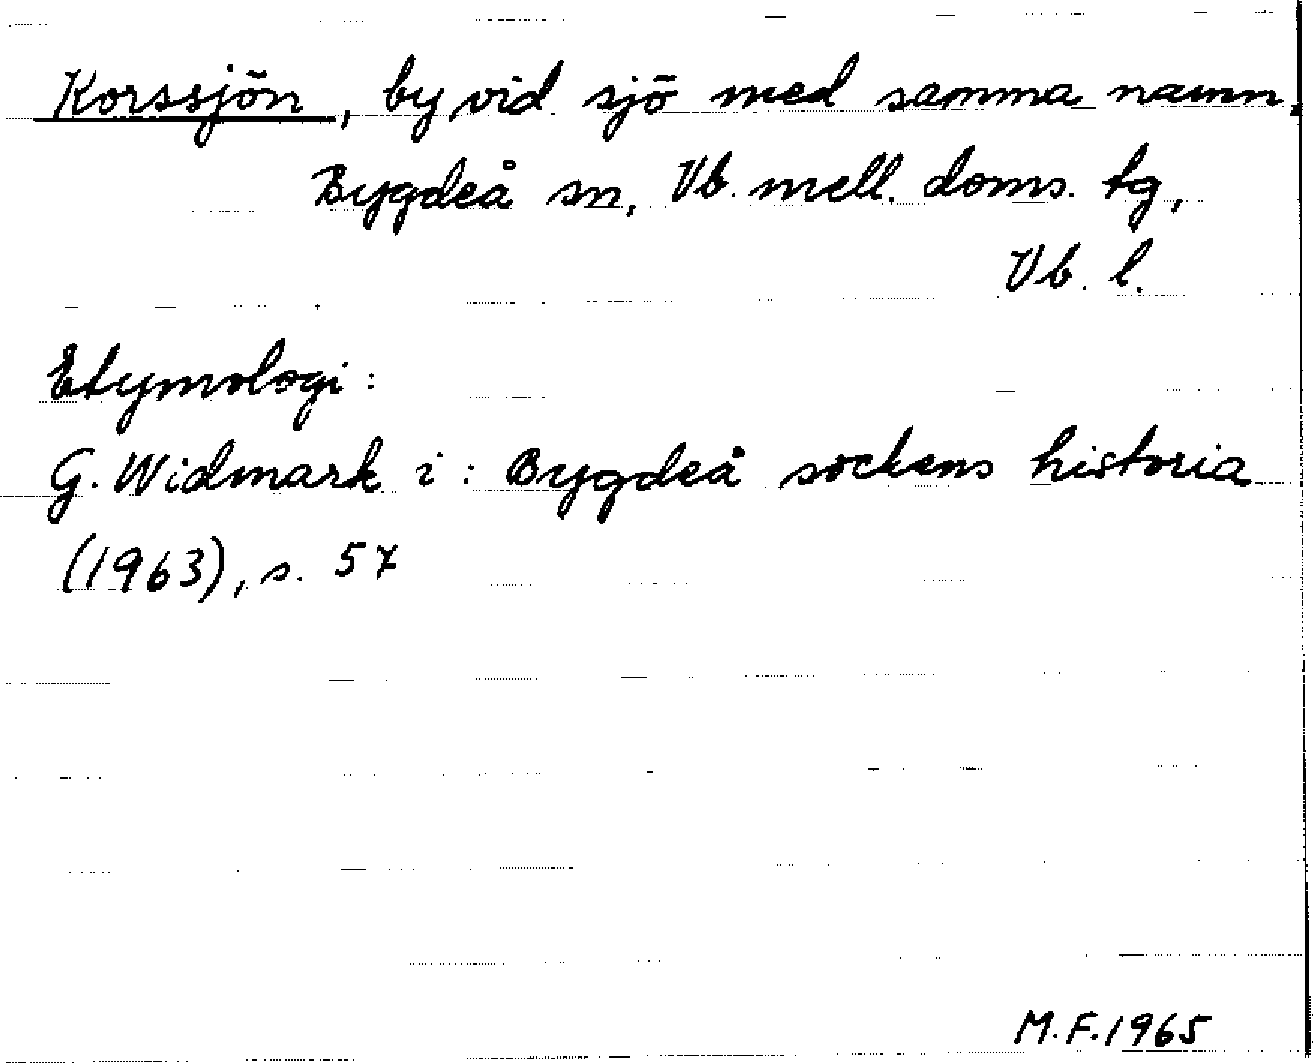 Korssjön, by vid sjö med samma namn.
Bygdeå sn, Vb. mell. doms. tg,
Vb. l.
Etymologi:
G. Widmark i: Bygdeå sockens historia
(1963), s. 57
M.F. 1965